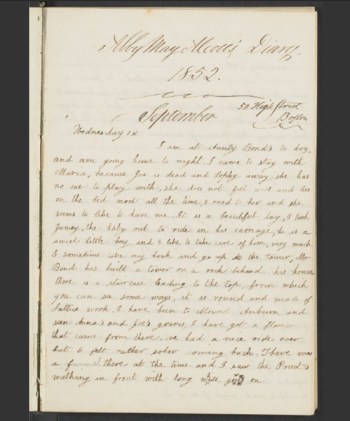 Abby May Alcott's Diary
1852.
September 50 High Street
Boston
Wednesday 1st.
I am at Aunty Bond's to day,
and am going home to night. I came to stay with
Maria, because Geo is dead and Sophy away, she has
no one to play with, she does not feel well and lies
on the bed most all the time, I read to her and she
seems to like to have me. It is a beautiful day, I took
the baby out to ride in his carriage, he is a
sweet little boy, and I like to take care of him, very much
I sometimes take my book and go up to the tower, Mr
Bond has built a tower on a rock behind his house
there is a staircase leading to the top, from which
you can see some ways, it is round and made of
lattice work, I have been to Mount Auburn and
saw Anna's and Geo's graves, I have got a flower
that came from there. we had a nice ride over
but I felt rather sober coming back, there was
a funeral there at the time and I saw the Priest
walking in front with long on